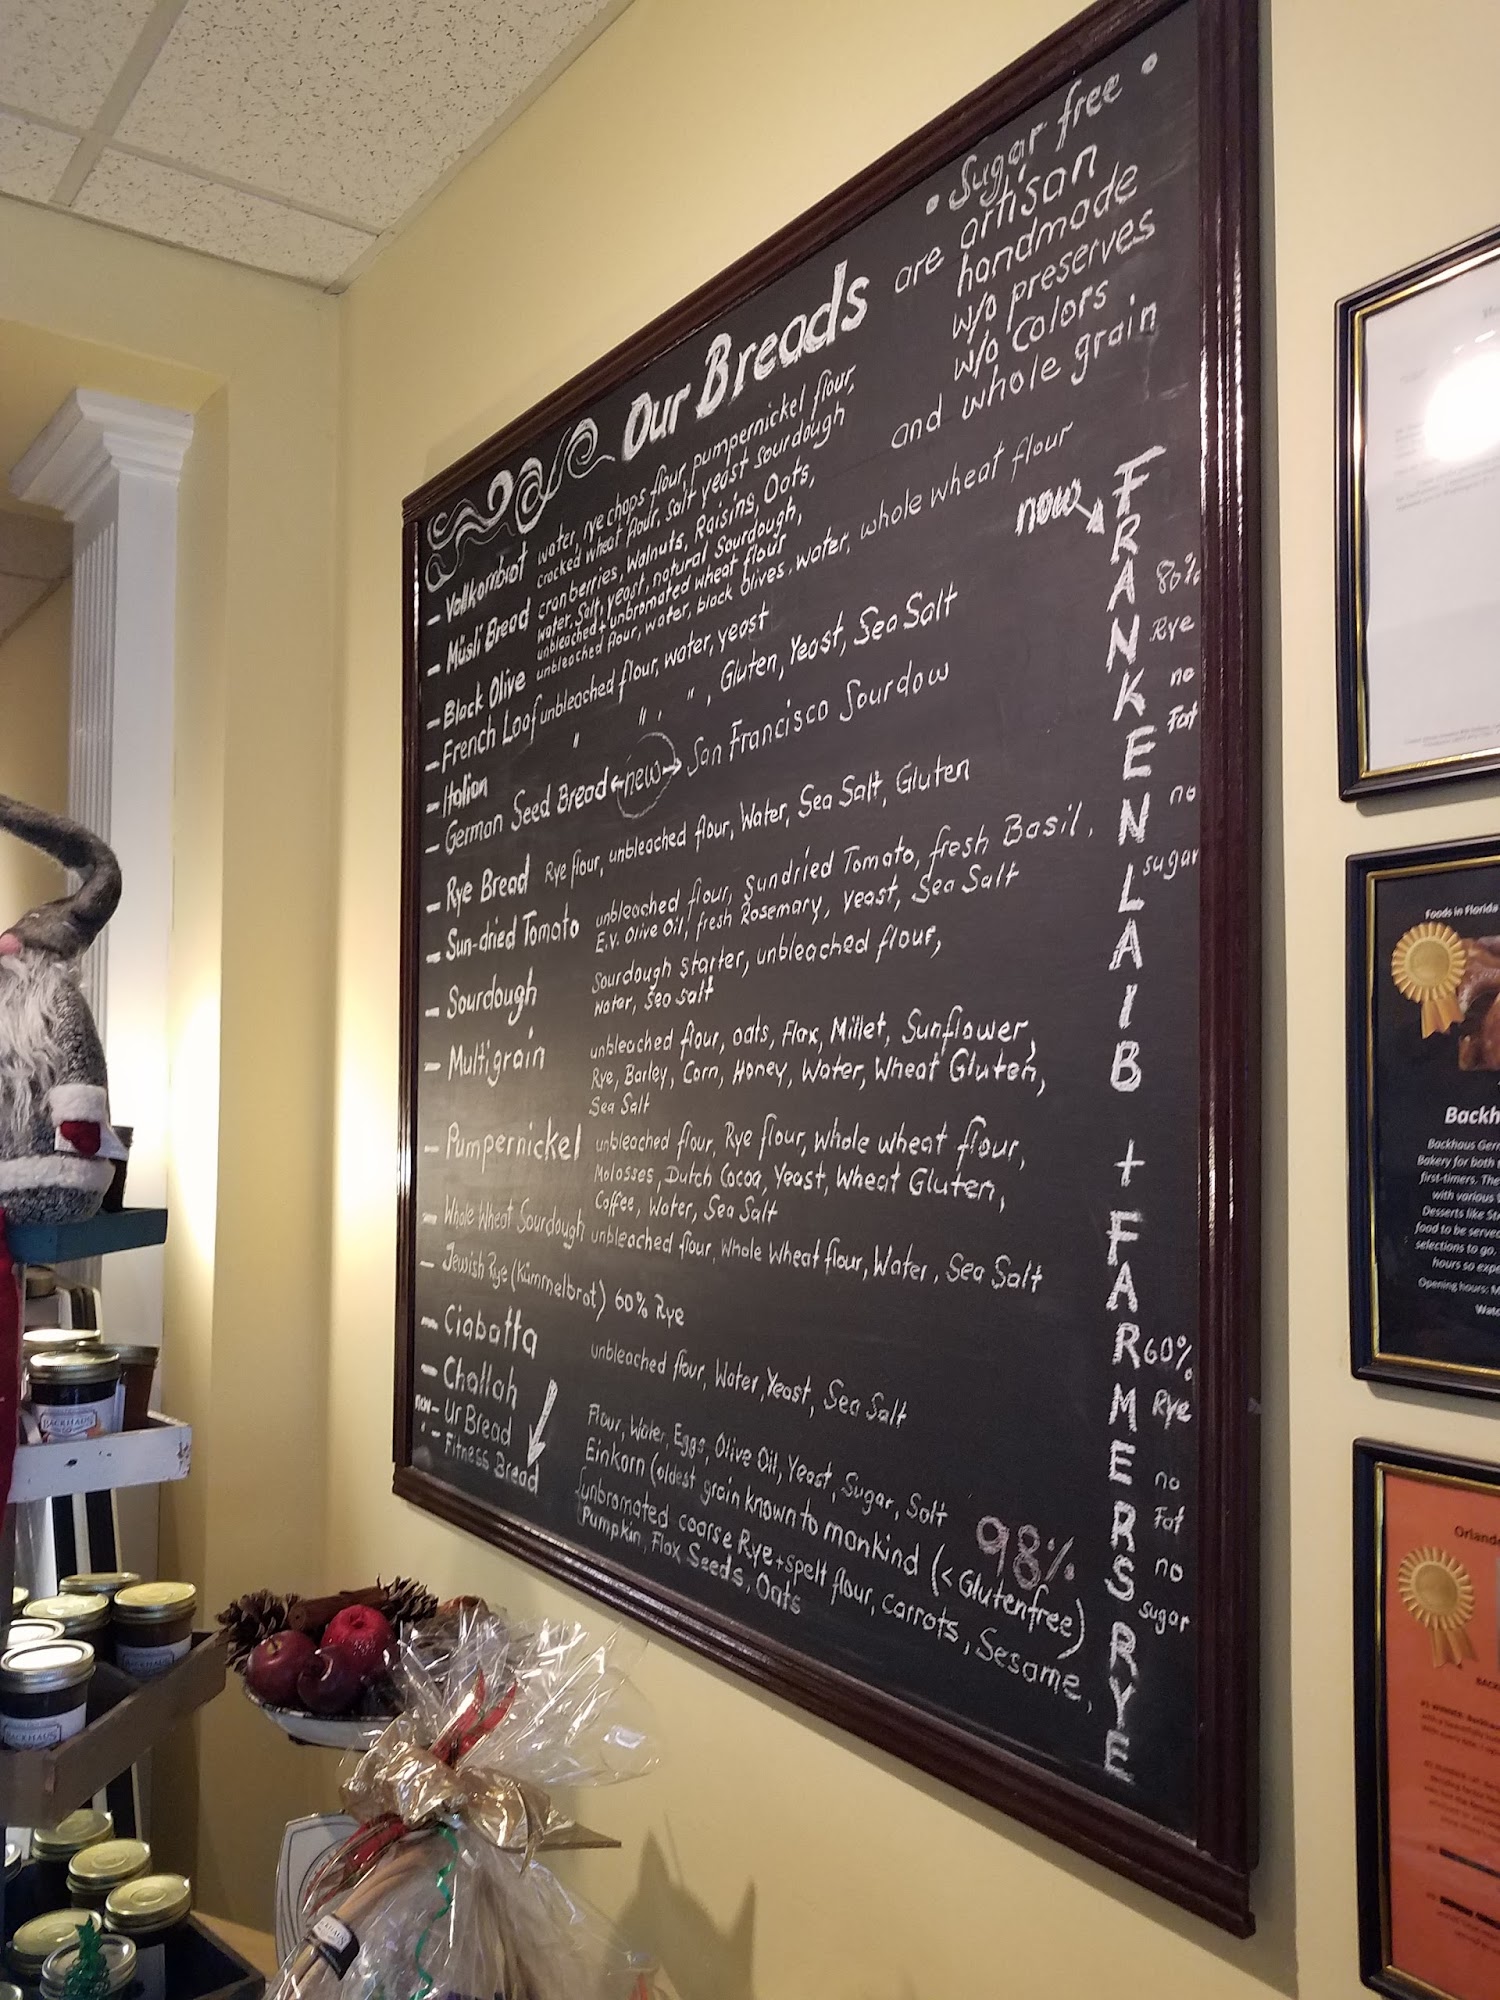 • Sugar free •
Our Breads are artisan
handmade
w/o preserves
w/o colors
and whole grain
- Vollkornbrot water, rye chops flour, pumpernickel flour,
cracked wheat flour, salt yeast sourdough
- Müsli Bread cranberries, Walnuts, Raisins, Oats,
water, Salt, yeast, natural Sourdough,
unbleached + unbromated wheat flour
- Black Olive unbleached flour, water, black olives, water, whole wheat flour
- French Loaf unbleached flour, water, yeast
- Italian " " , " , Gluten, Yeast, Sea Salt
- German Seed Bread ←new→ San Francisco Sourdow
- Rye Bread Rye flour, unbleached flour, Water, Sea Salt, Gluten
- Sun-dried Tomato unbleached flour, Sundried Tomato, fresh Basil,
E.V. Olive Oil, fresh Rosemary, Yeast, Sea Salt
- Sourdough Sourdough starter, unbleached flour,
Water, Sea salt
- Multigrain unbleached flour, oats, Flax, Millet, Sunflower,
Rye, Barley, Corn, Honey, Water, Wheat Gluten,
Sea Salt
- Pumpernickel unbleached flour, Rye flour, whole wheat flour,
Molosses, Dutch Cocoa, Yeast, Wheat Gluten,
Coffee, Water, Sea Salt
- Whole Wheat Sourdough unbleached flour, Whole Wheat flour, Water, Sea Salt
- Jewish Rye (Kümmelbrot) 60% Rye
- Ciabatta unbleached flour, Water, Yeast, Sea Salt
- Challah Flour, Water, Eggs, Olive Oil, Yeast, Sugar, Salt
new- Ur Bread Einkorn (oldest grain known to mankind (< Glutenfree)
98%
" - Fitness Bread unbromated coarse Rye + spelt flour, carrots, Sesame,
Pumpkin, Flax Seeds, Oats
now
FRANKENLAIB + FARMERS RYE
80%
Rye
no
Fat
no
sugar
60%
Rye
no
Fat
no
sugar
Foods in Florida
Backh
Backhaus Ger
Bakery for both
first-timers. The
with various
Desserts like St
food to be serve
selections to go.
hours so exp
Opening hours: M
Watc
Orland
BACKHAUS
BACKHAUS